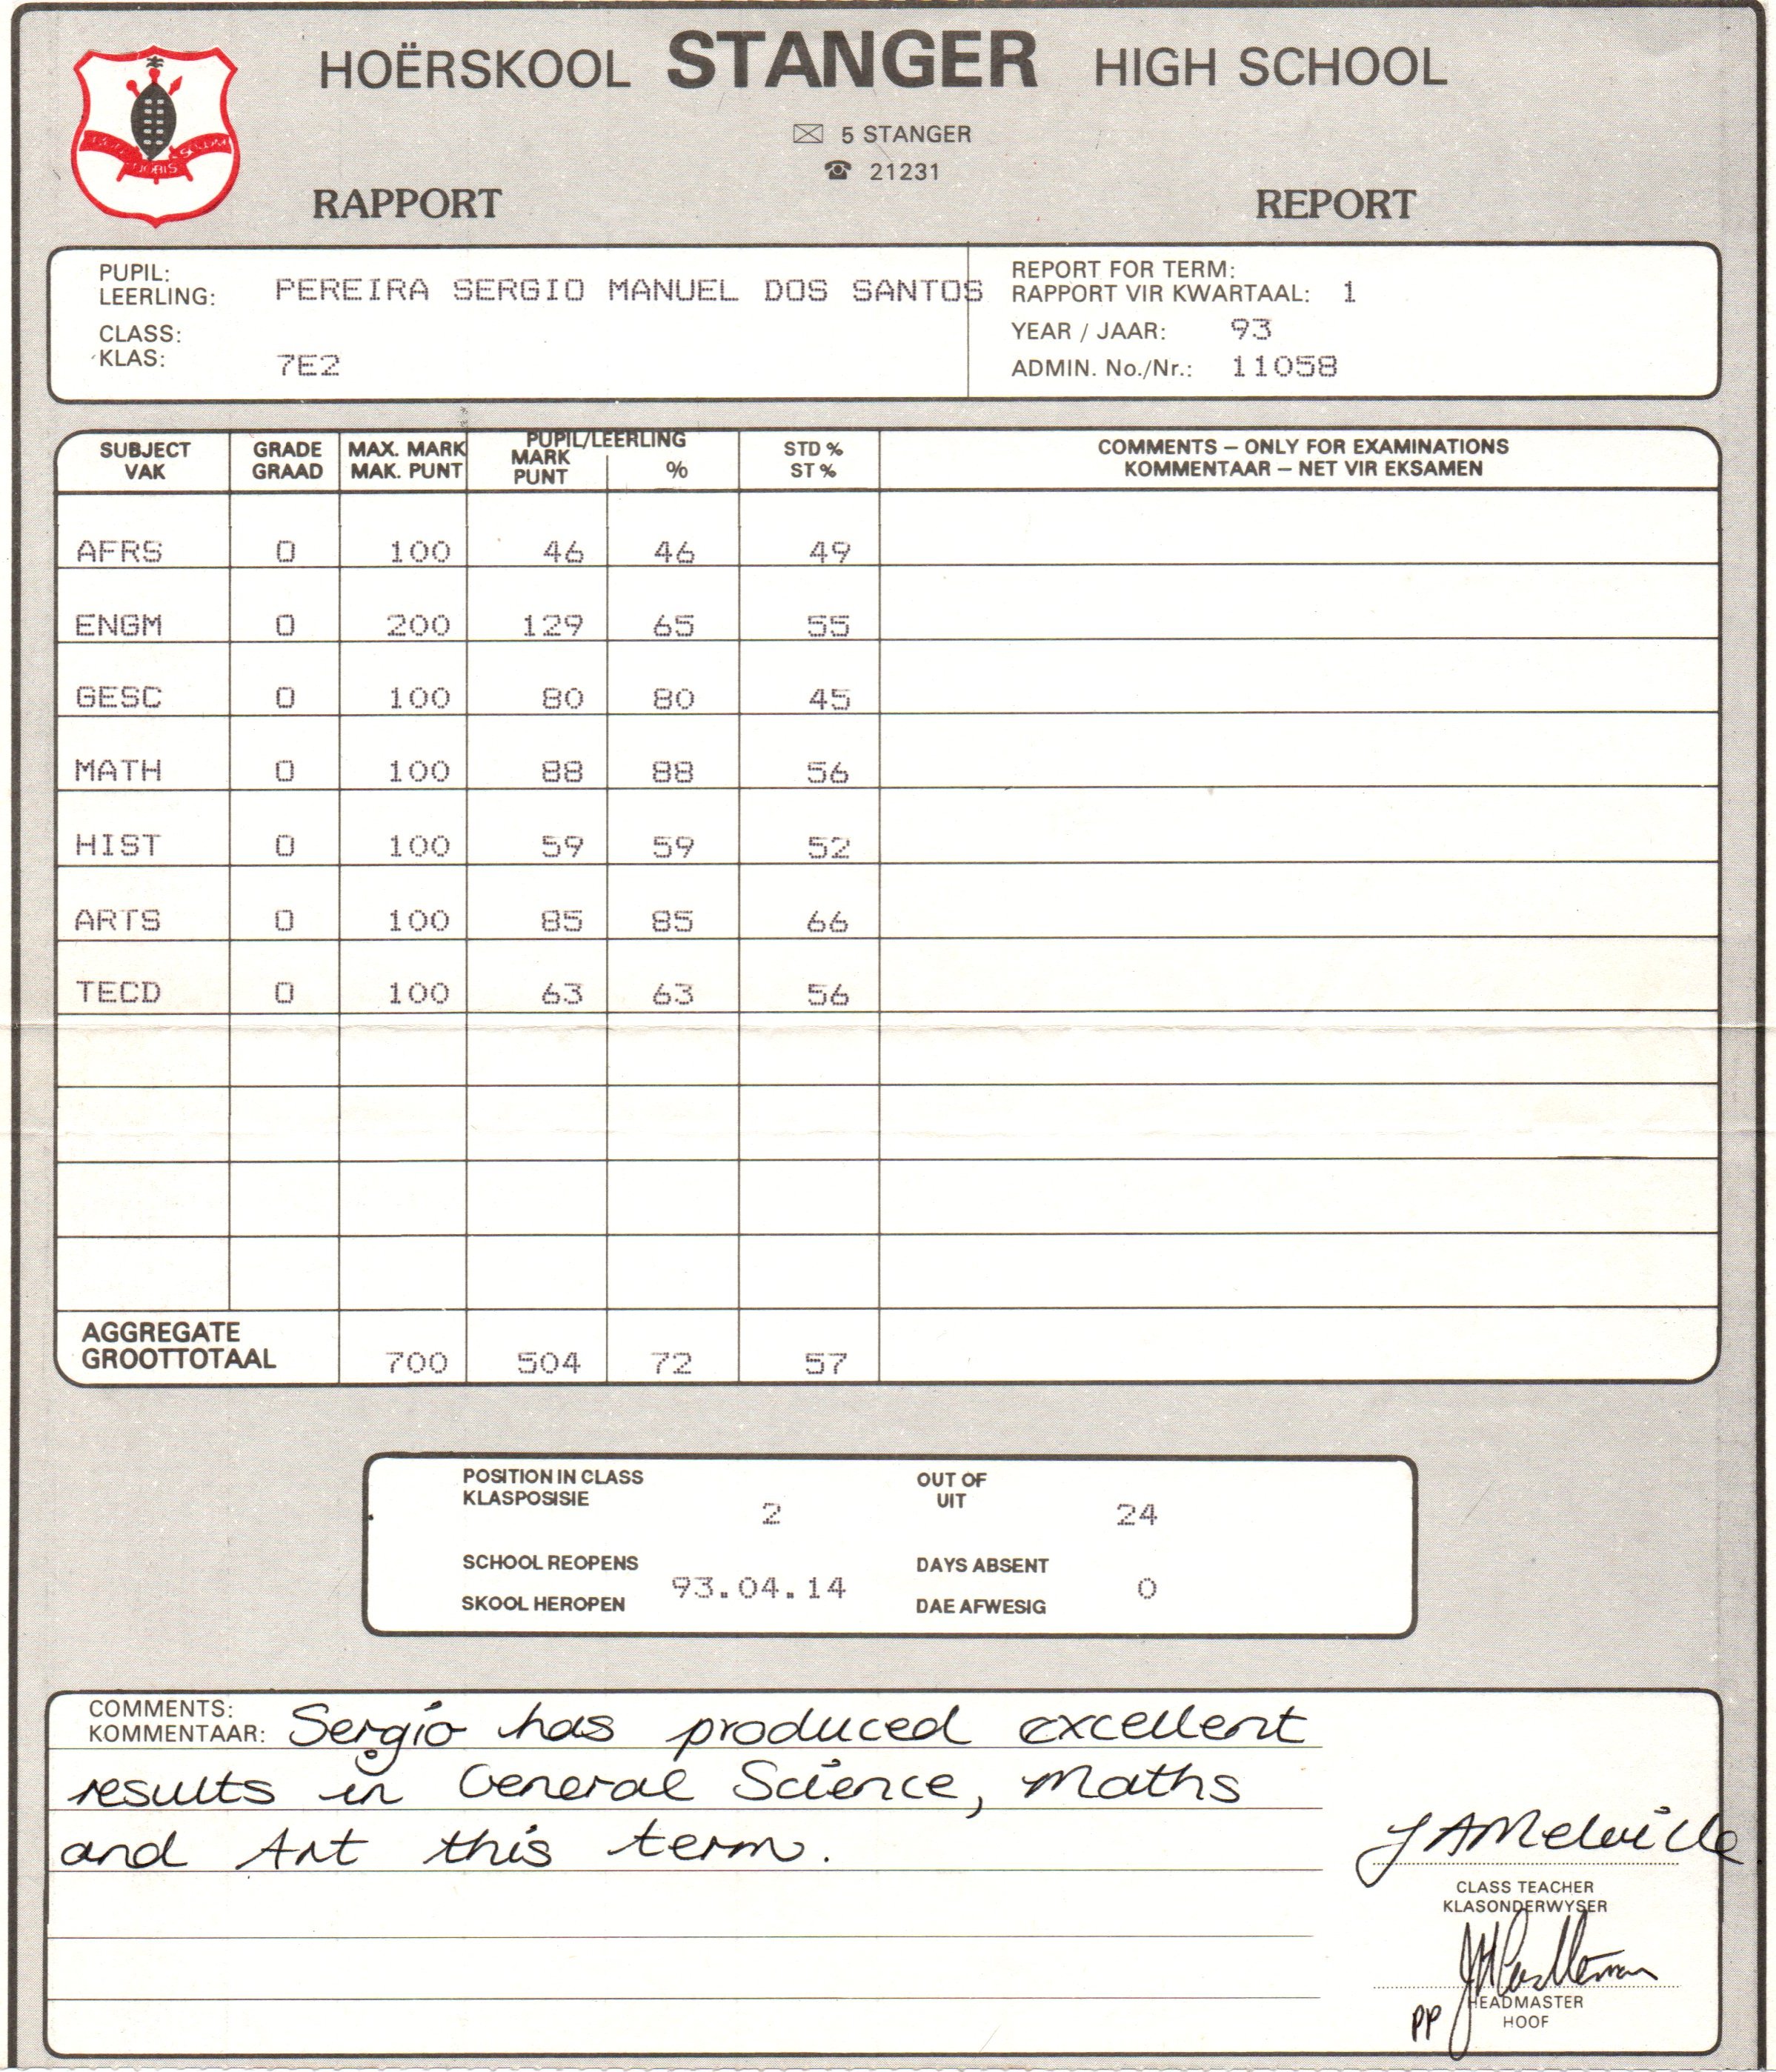 HOËRSKOOL STANGER HIGH SCHOOL
5 STANGER
21231
NOBIS
RAPPORT REPORT
PUPIL:
LEERLING: PEREIRA SERGIO MANUEL DOS SANTOS
CLASS:
KLAS: 7E2
REPORT FOR TERM:
RAPPORT VIR KWARTAAL: 1
YEAR / JAAR: 93
ADMIN. No./Nr.: 11058
SUBJECT
VAK
GRADE
GRAAD
MAX. MARK
MAK. PUNT
PUPIL/LEERLING
MARK
PUNT
%
STD %
ST %
COMMENTS – ONLY FOR EXAMINATIONS
KOMMENTAAR – NET VIR EKSAMEN
AFRS 0 100 46 46 49
ENGM 0 200 129 65 55
GESC 0 100 80 80 45
MATH 0 100 88 88 56
HIST 0 100 59 59 52
ARTS 0 100 85 85 66
TECD 0 100 63 63 56
AGGREGATE
GROOTTOTAAL 700 504 72 57
POSITION IN CLASS
KLASPOSISIE 2
OUT OF
UIT 24
SCHOOL REOPENS
SKOOL HEROPEN 93.04.14
DAYS ABSENT
DAE AFWESIG 0
COMMENTS:
KOMMENTAAR: Sergio has produced excellent
results in General Science, Maths
and Art this term.
JAMelville
CLASS TEACHER
KLASONDERWYSER
PP
HEADMASTER
HOOF